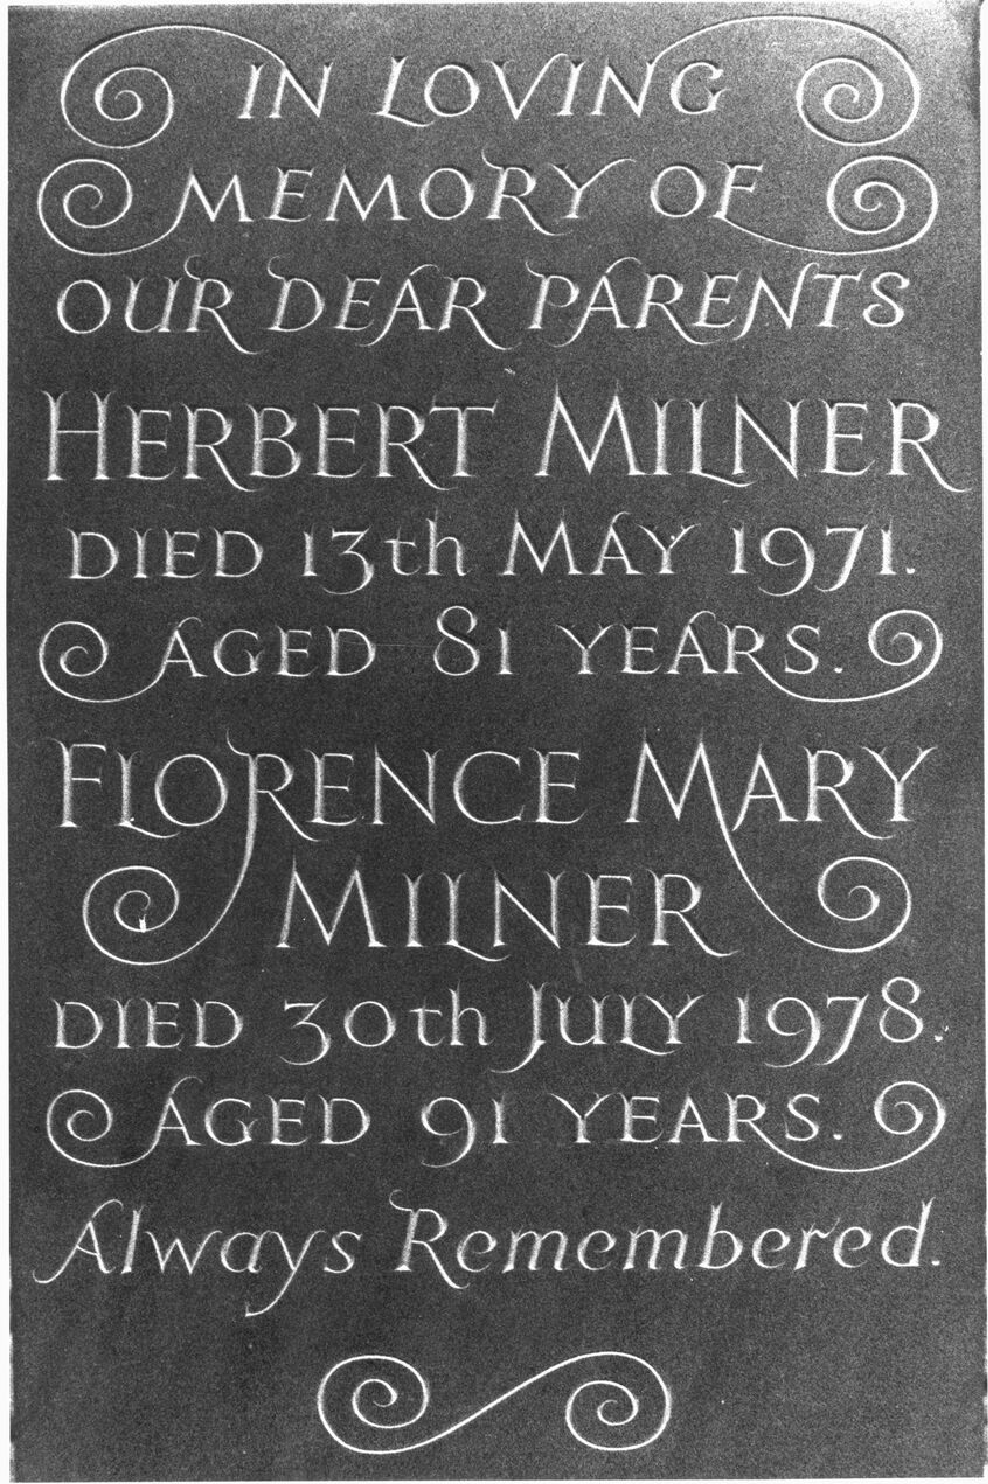 IN LOVING
MEMORY OF
OUR DEAR PARENTS
HERBERT MILNER
DIED 13th MAY 1971.
AGED 81 YEARS.
FLORENCE MARY
MILNER
DIED 30th JULY 1978.
AGED 91 YEARS.
Always Remembered.